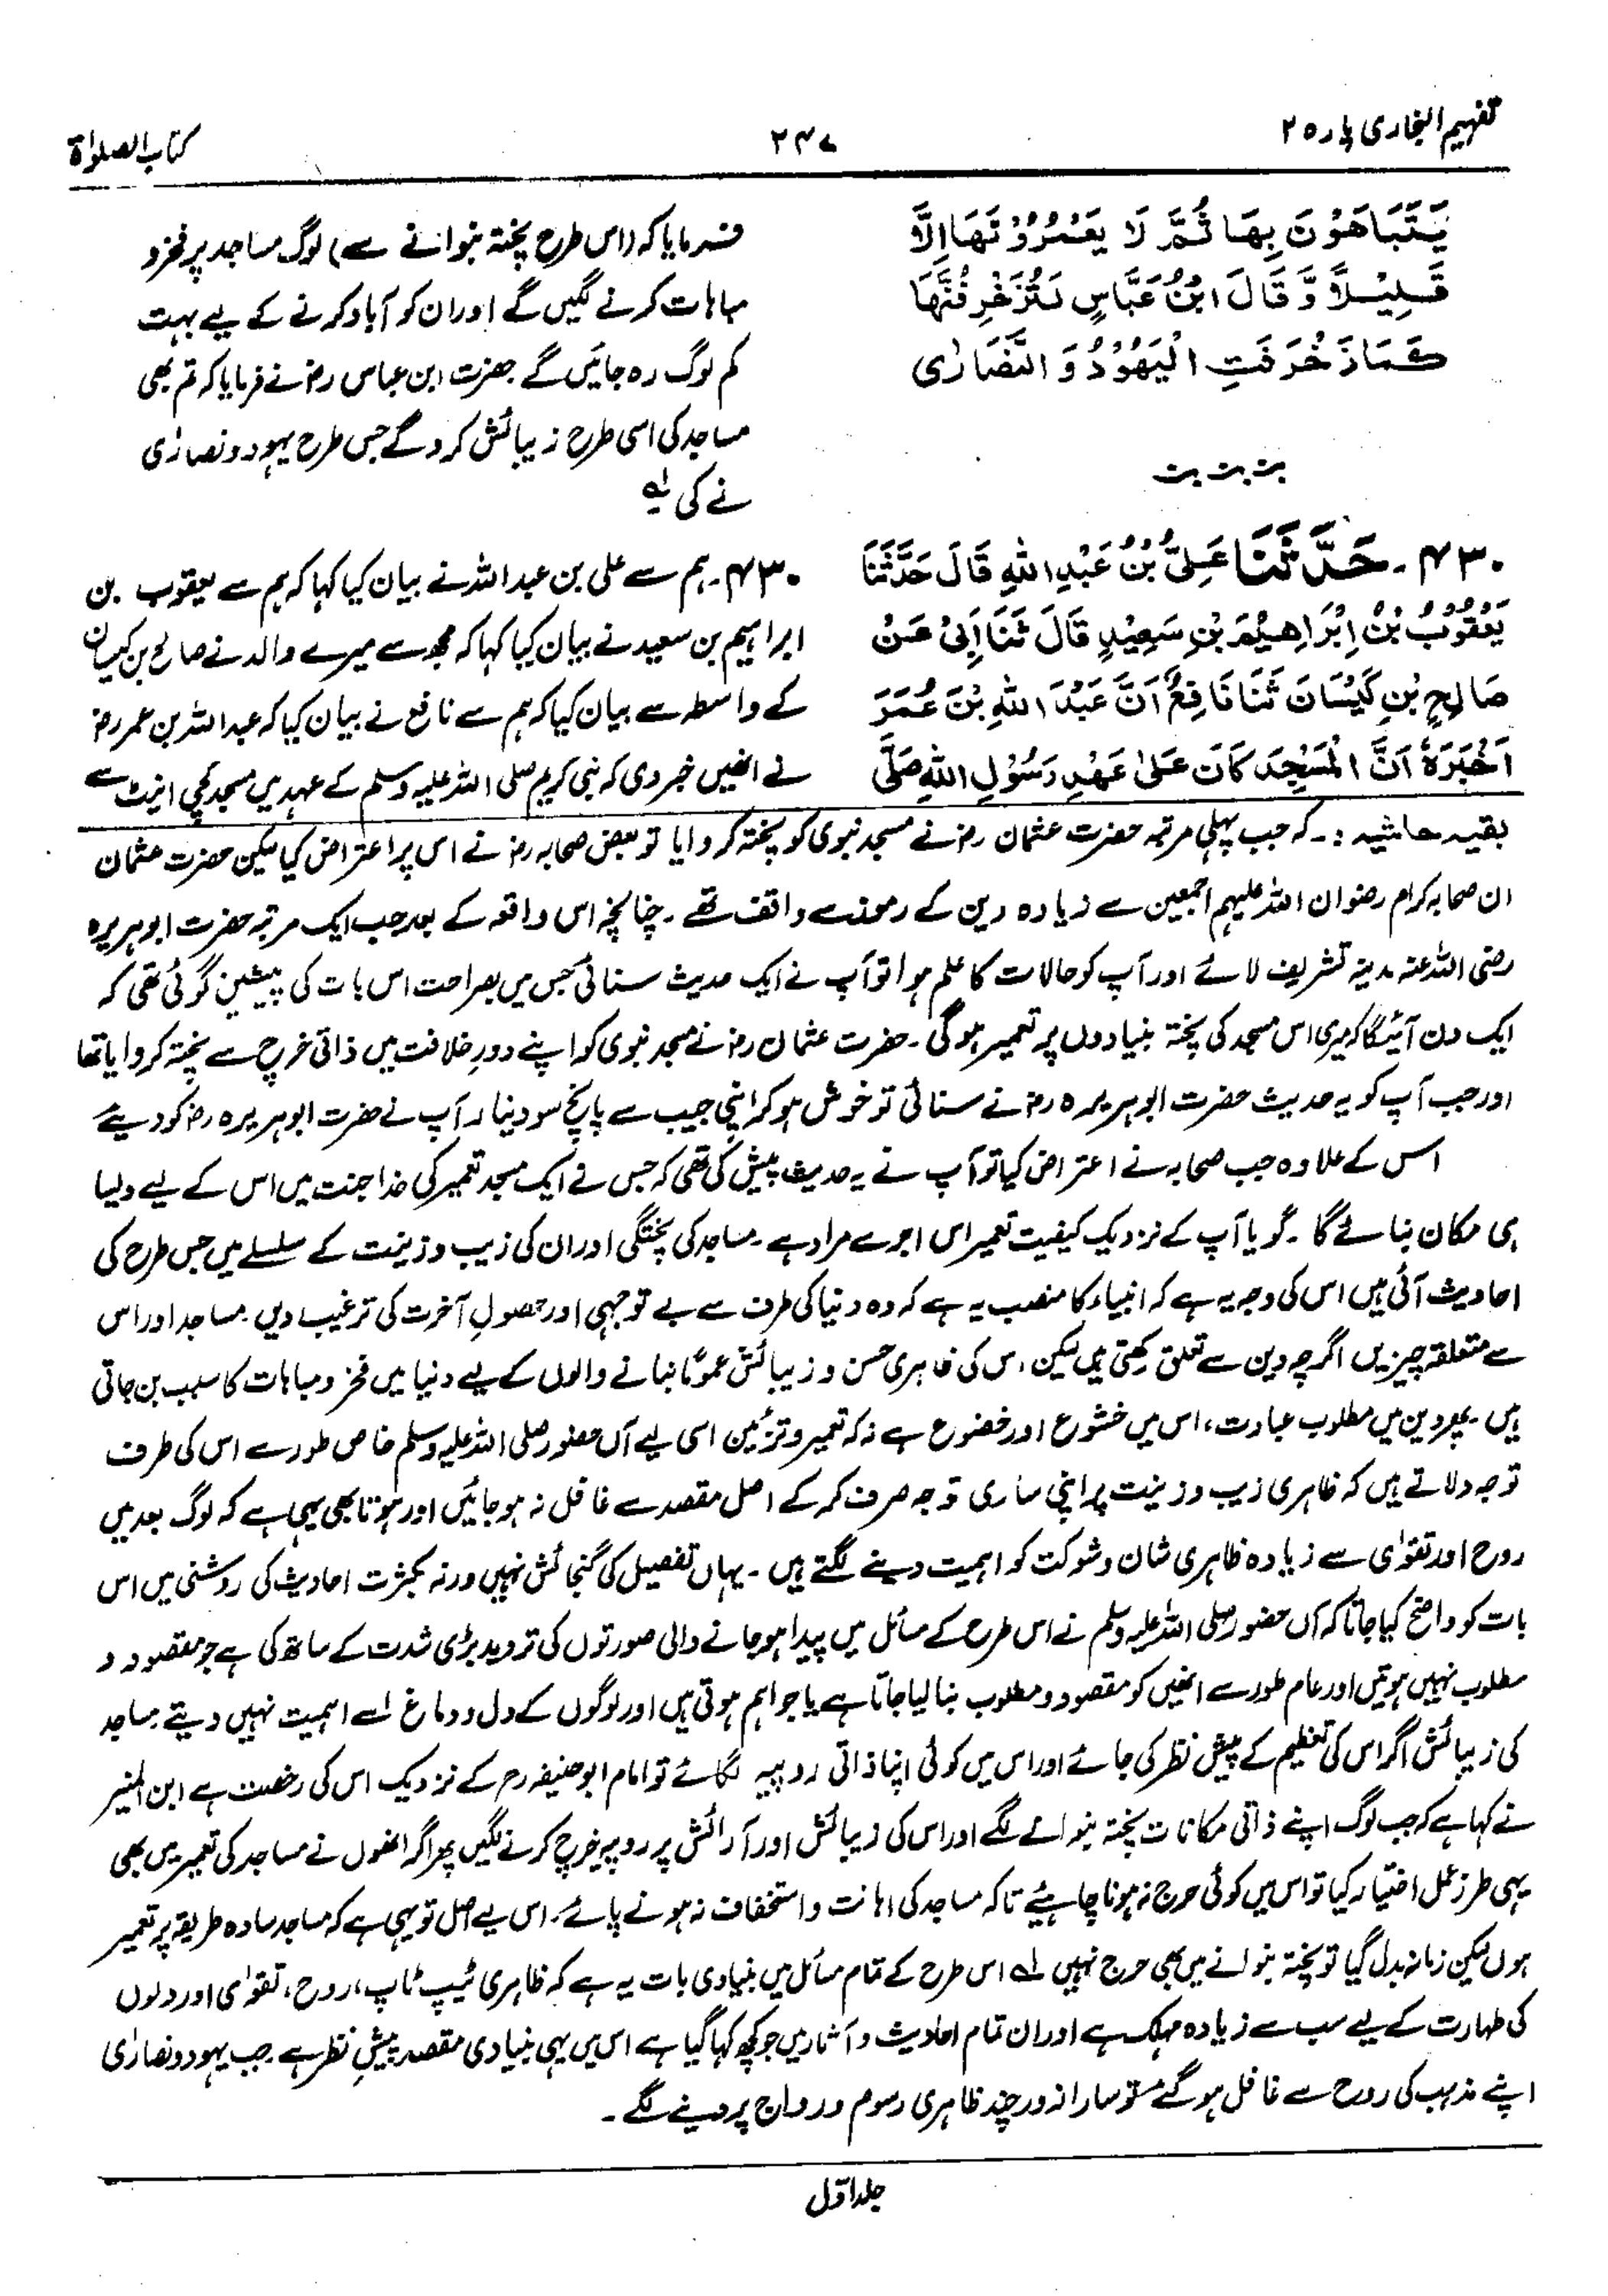 تفہیم البخاری پارہ ۲
۲۴۷
کتاب الصلوٰۃ
يَتَبَاهَوْنَ بِهَا ثُمَّ لَا يَعْمُرُوْنَهَا اِلَّا
قَلِيْلًا وَّ قَالَ ابْنُ عَبَّاسٍ لَتُزَخْرِفُنَّهَا
كَمَا زَخْرَفَتِ الْيَهُوْدُ وَ النَّصَارٰى
فرمایا کہ (اس طرح پختہ بنوانے سے) لوگ مساجد پر فخر و
مباہات کرنے لگیں گے اور ان کو آباد کرنے کے لیے بہت
کم لوگ رہ جائیں گے حضرت ابن عباس رضؓ نے فرمایا کہ تم بھی
مساجد کی اسی طرح زیبائش کرو گے جس طرح یہود و نصاریٰ
نے کی لہ
۴۳۰ ۔ حَدَّثَنَا عَلِيُّ بْنُ عَبْدِ اللهِ قَالَ حَدَّثَنَا
يَعْقُوْبُ بْنُ اِبْرَاهِيْمَ بْنِ سَعِيْدٍ قَالَ ثَنَا اَبِيْ عَنْ
صَالِحِ بْنِ كَيْسَانَ ثَنَا نَافِعٌ اَنَّ عَبْدَ اللهِ بْنَ عُمَرَ
اَخْبَرَهٗ اَنَّ الْمَسْجِدَ كَانَ عَلىٰ عَهْدِ رَسُوْلِ اللهِ صَلَّى
۴۳۰ ۔ ہم سے علی بن عبداللہ نے بیان کیا کہا کہ ہم سے یعقوب بن
ابراہیم بن سعید نے بیان کیا کہا کہ مجھ سے میرے والد نے صالح بن کیسان
کے واسطہ سے بیان کیا کہ ہم سے نافع نے بیان کیا کہ عبداللہ بن عمر رضؓ
نے انھیں خبر دی کہ نبی کریم صلی اللہ علیہ وسلم کے عہد میں مسجد کچی اینٹ سے
بقیہ حاشیہ :۔ کہ جب پہلی مرتبہ حضرت عثمان رضؓ نے مسجد نبوی کو پختہ کروایا تو بعض صحابہ رضؓ نے اس پر اعتراض کیا لیکن حضرت عثمان
ان صحابہ کرام رضوان اللہ علیہم اجمعین سے زیادہ دین کے رموز سے واقف تھے ۔ چنانچہ اس واقعہ کے بعد جب ایک مرتبہ حضرت ابوہریرہ
رضی اللہ عنہ مدینہ تشریف لائے اور آپ کو حالات کا علم ہوا تو آپ نے ایک حدیث سنائی جس میں بصراحت اس بات کی پیشین گوئی تھی کہ
ایک دن آئیگا کہ میری اس مسجد کی پختہ بنیادوں پر تعمیر ہوگی ۔ حضرت عثمان رضؓ نے مسجد نبوی کو اپنے دورِ خلافت میں ذاتی خرچ سے پختہ کروایا تھا
اور جب آپ کو یہ حدیث حضرت ابوہریرہ رضؓ نے سنائی تو خوش ہو کر اپنی جیب سے پانچ سو دینار آپ نے حضرت ابوہریرہ رضؓ کو دیئے
اس کے علاوہ جب صحابہ نے اعتراض کیا تو آپ نے یہ حدیث پیش کی تھی کہ جس نے ایک مسجد تعمیر کی خدا جنت میں اس کے لیے ویسا
ہی مکان بنائے گا ۔ گویا آپ کے نزدیک کیفیت تعمیر اس اجر سے مراد ہے ۔ مساجد کی پختگی اور ان کی زیب و زینت کے سلسلے میں جس طرح کی
احادیث آئی ہیں اس کی وجہ یہ ہے کہ انبیاء کا منصب یہ ہے کہ وہ دنیا کی طرف سے بے توجہی اور حصولِ آخرت کی ترغیب دیں ۔ مساجد اور اس
سے متعلقہ چیزیں اگرچہ دین سے تعلق رکھتی ہیں لیکن اس کی ظاہری حسن و زیبائش عموماً بنانے والوں کے لیے دنیا میں فخر و مباہات کا سبب بن جاتی
ہیں ۔ پھر دین میں مطلوب عبادت، اس میں خشوع اور خضوع ہے نہ کہ تعمیر و تزئین اسی لیے آں حضور صلی اللہ علیہ وسلم خاص طور سے اس کی طرف
توجہ دلاتے ہیں کہ ظاہری زیب و زینت پر اپنی ساری توجہ صرف کر کے اصل مقصد سے غافل نہ ہو جائیں اور ہوتا بھی یہی ہے کہ لوگ بعد میں
روح اور تقوٰی سے زیادہ ظاہری شان و شوکت کو اہمیت دینے لگتے ہیں ۔ یہاں تفصیل کی گنجائش نہیں ورنہ بکثرت احادیث کی روشنی میں اس
بات کو واضح کیا جاتا کہ آں حضور صلی اللہ علیہ وسلم نے اس طرح کے مسائل میں پیدا ہو جانے والی صورتوں کی تردید بڑی شدت کے ساتھ کی ہے جو مقصود و
مطلوب نہیں ہوتیں اور عام طور سے انھیں کو مقصود و مطلوب بنا لیا جاتا ہے یا جو اہم ہوتی ہیں اور لوگوں کے دل و دماغ اسے اہمیت نہیں دیتے مساجد
کی زیبائش اگر اس کی تعظیم کے پیش نظر کی جائے اور اس میں کوئی اپنا ذاتی روپیہ لگائے تو امام ابو حنیفہ رح کے نزدیک اس کی رخصت ہے ابن المنیر
نے کہا ہے کہ جب لوگ اپنے ذاتی مکانات پختہ بنوانے لگے اور اس کی زیبائش اور آرائش پر روپیہ خرچ کرنے لگیں پھر اگر انھوں نے مساجد کی تعمیر میں بھی
یہی طرز عمل اختیار کیا تو اس میں کوئی حرج نہ ہونا چاہیئے تاکہ مساجد کی اہانت و استخفاف نہ ہونے پائے ۔ اس لیے اصل تو یہی ہے کہ مساجد سادہ طریقہ پر تعمیر
ہوں لیکن زمانہ بدل گیا تو پختہ بنوانے میں بھی حرج نہیں لہ اس طرح کے تمام مسائل میں بنیادی بات یہ ہے کہ ظاہری ٹیپ ٹاپ، روح، تقوٰی اور دلوں
کی طہارت کے لیے سب سے زیادہ مہلک ہے اور ان تمام احادیث و آثار میں جو کچھ کہا گیا ہے اس میں یہی بنیادی مقصد پیشِ نظر ہے ۔ جب یہود و نصاریٰ
اپنے مذہب کی روح سے غافل ہو گئے تو سارا زور چند ظاہری رسوم و رواج پر دینے لگے ۔
جلد اوّل